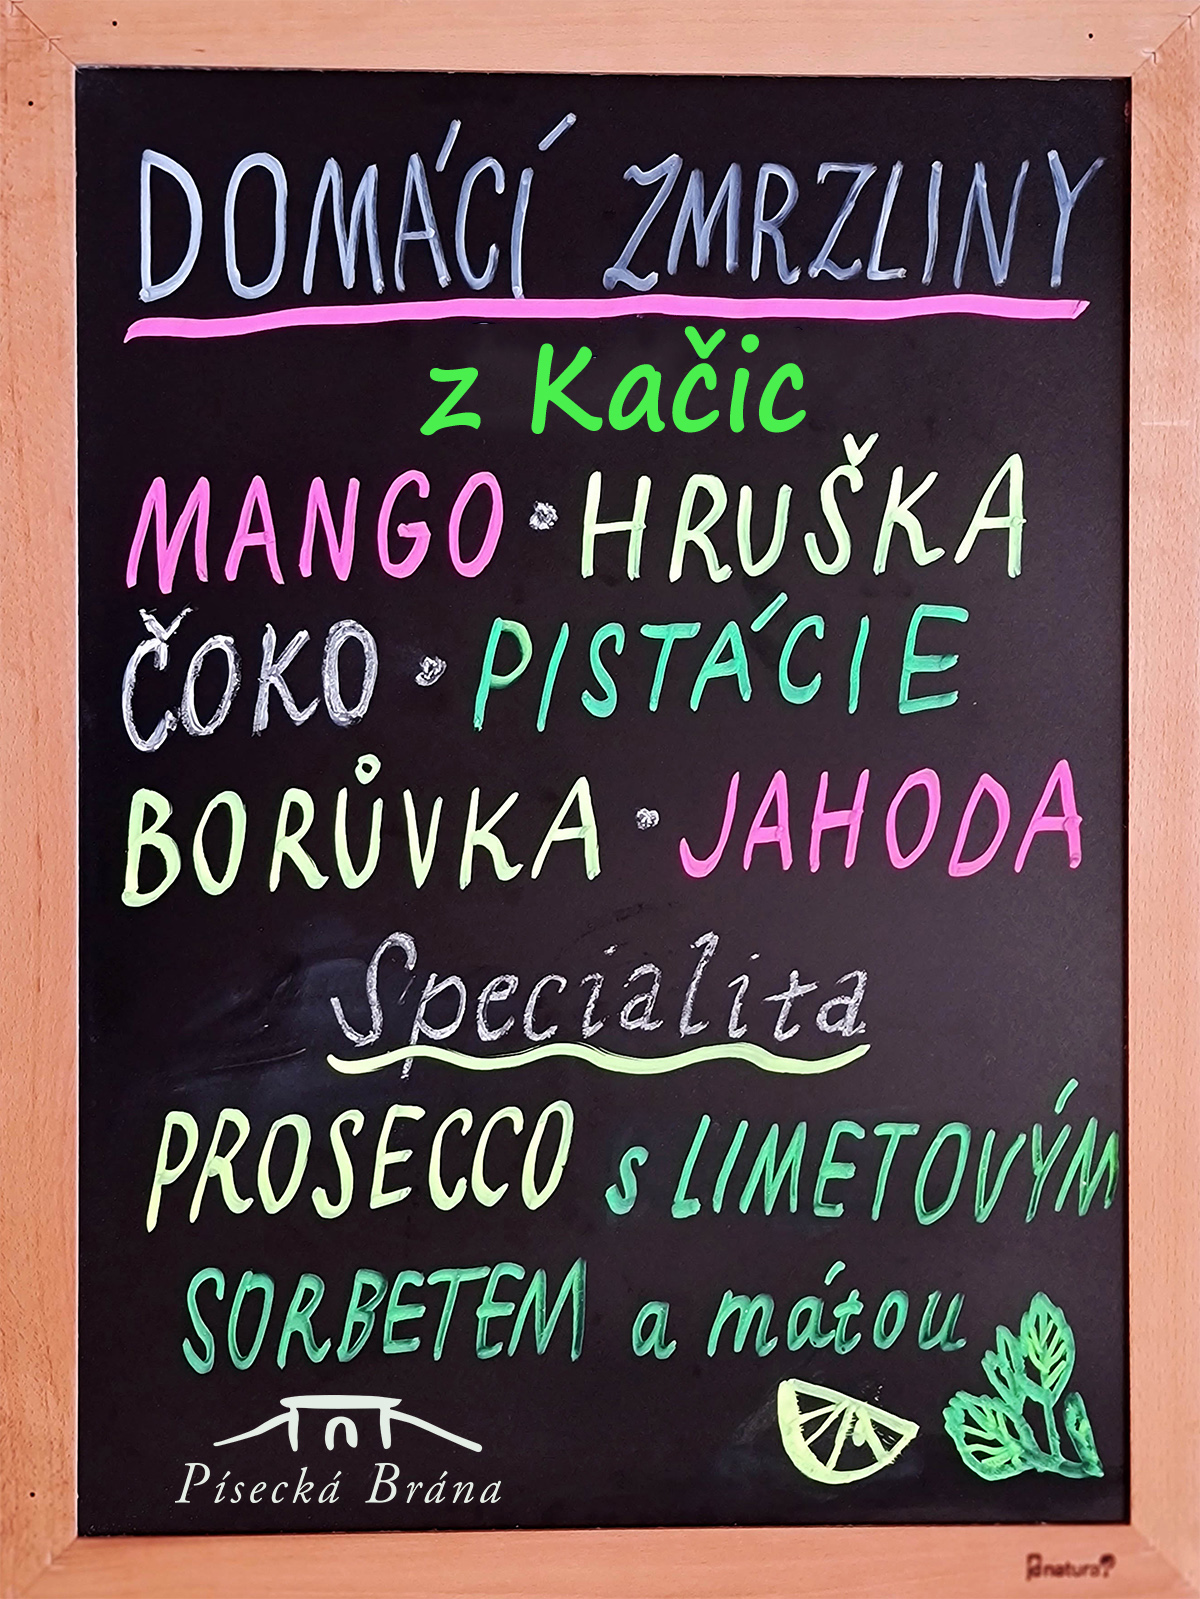 DOMÁCÍ ZMRZLINY
z Kačic
MANGO • HRUŠKA
ČOKO • PISTÁCIE
BORŮVKA • JAHODA
Specialita
PROSECCO s LIMETOVÝM
SORBETEM a mátou
Písecká Brána